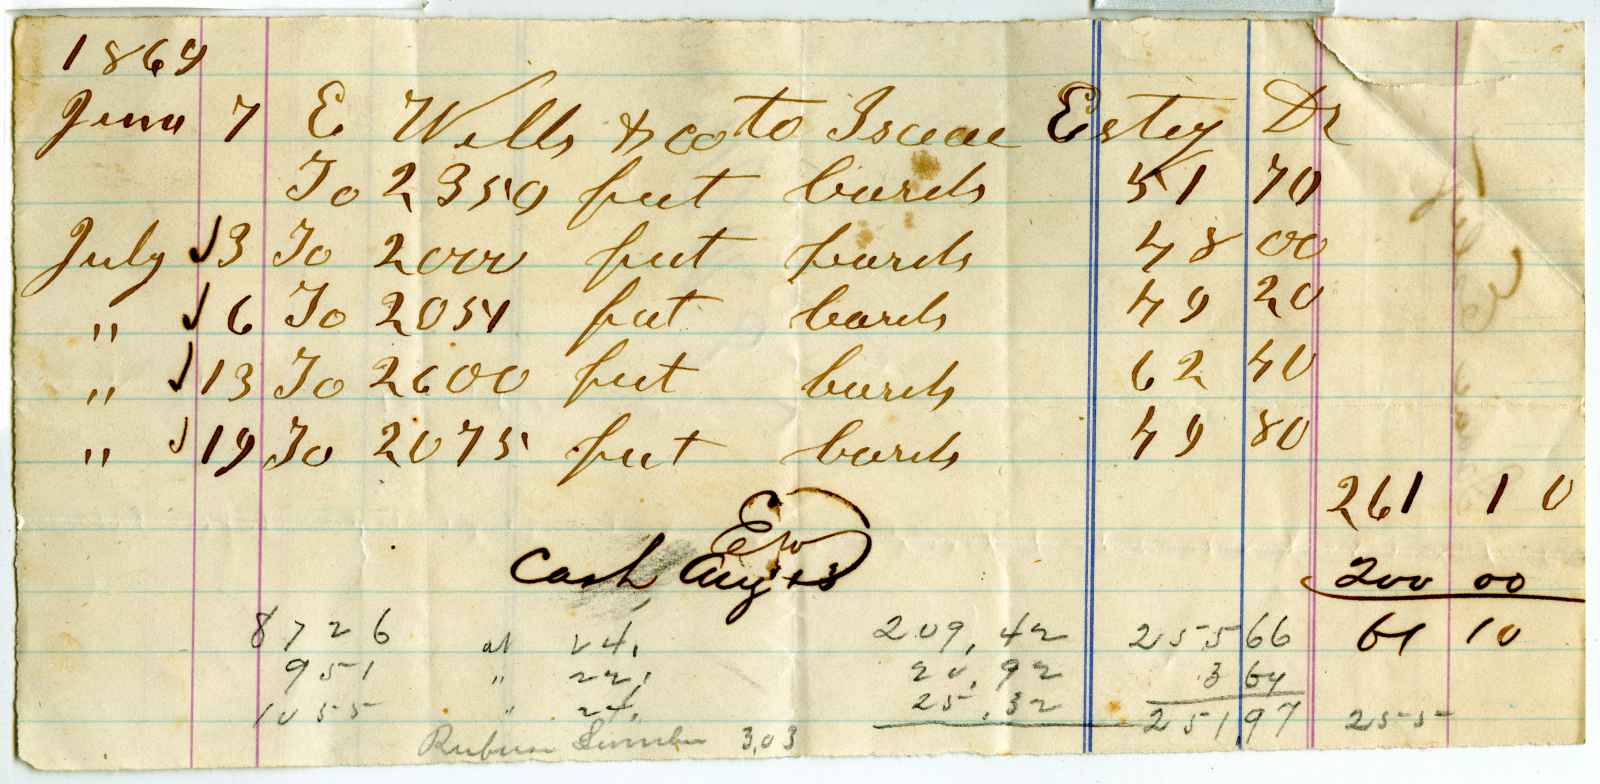 1869
June 7 E Wells & co to Isaac Estey Dr
To 2350 feet bords 51 70
July 3 To 2000 feet bords 48 00
" 6 To 2051 feet bords 49 20
" 13 To 2600 feet bords 62 40
" 19 To 2075 feet bords 49 80
261 10
EW
Cash Aug 200 00
8726 at 24, 209,42 25566 61 10
951 " 22, 20,92 3 69
1055 " 24, 25,32 251,97 255
3,03